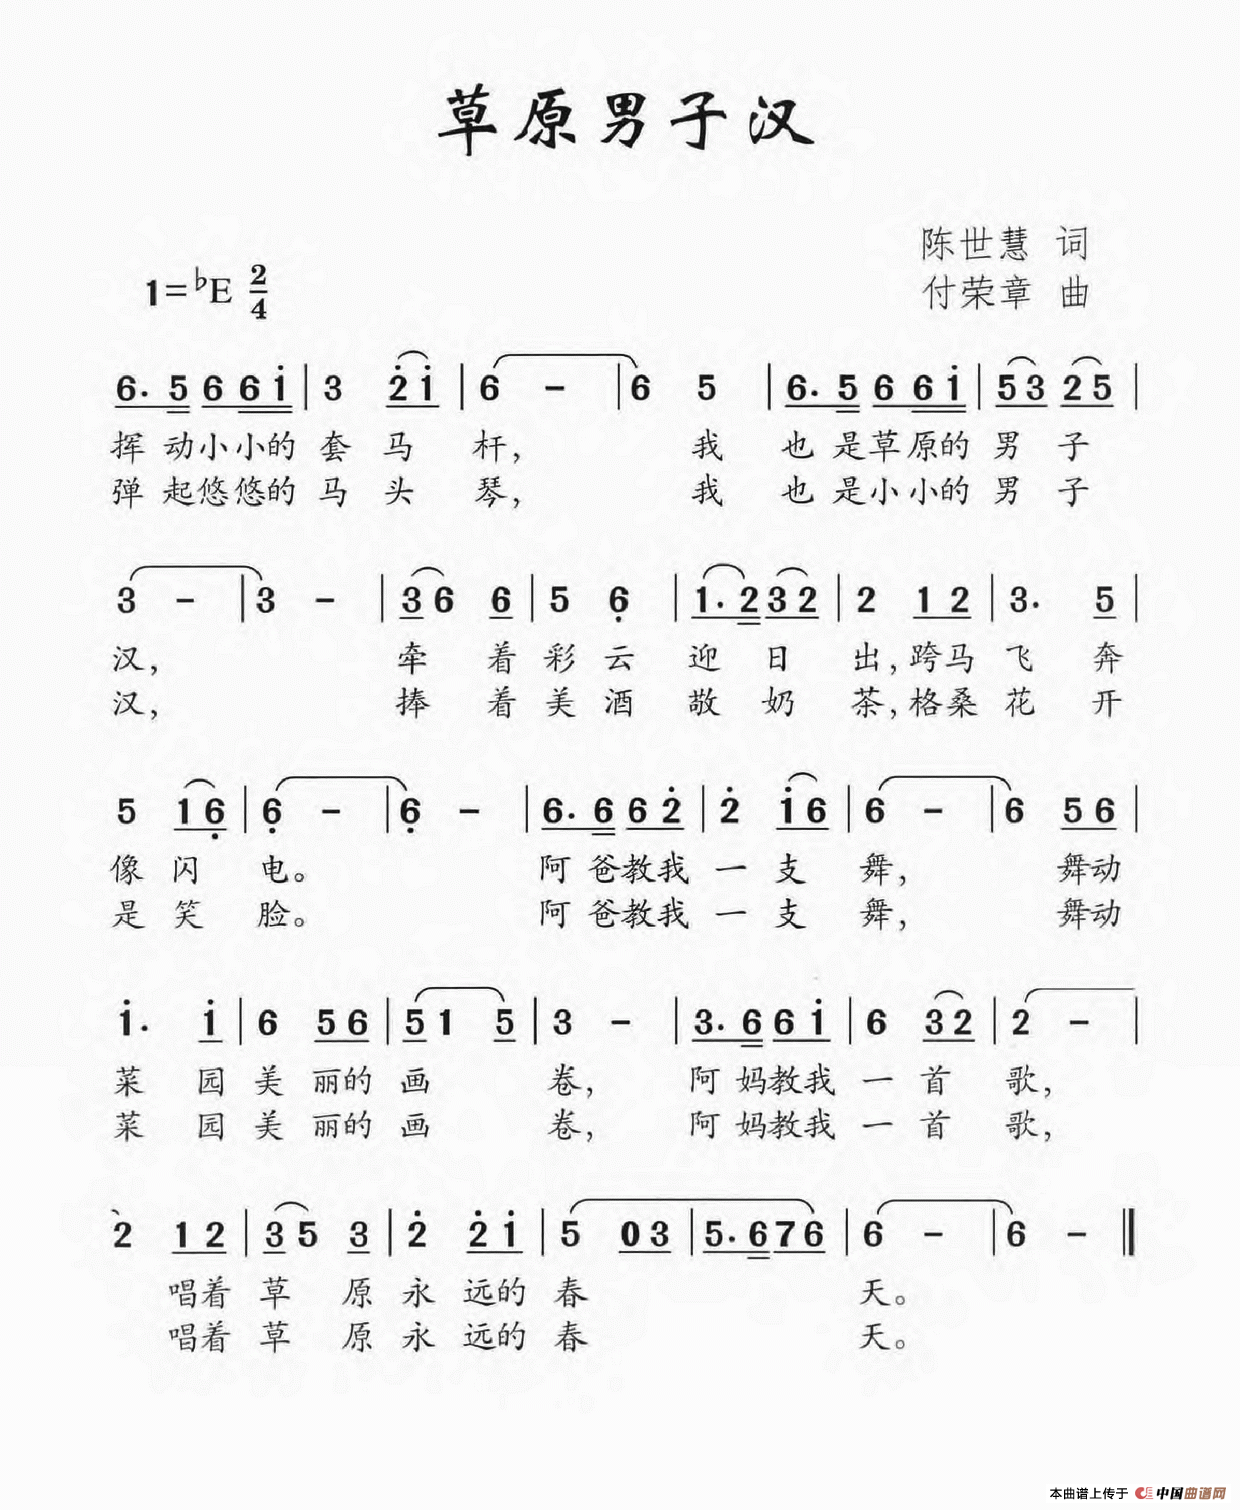 草原男子汉
陈世慧 词
1=♭E 2/4
付荣章 曲
6. 5 6 6 i | 3 2 i | 6 - | 6 5 | 6. 5 6 6 i | 5 3 2 5 |
挥动小小的套马杆, 我也是草原的男子
弹起悠悠的马头琴, 我也是小小的男子
3 - | 3 - | 3 6 6 | 5 6 | 1. 2 3 2 | 2 1 2 | 3. 5 |
汉, 牵着彩云迎日出,跨马飞奔
汉, 捧着美酒敬奶茶,格桑花开
5 1 6 | 6 - | 6 - | 6. 6 6 2 | 2 i 6 | 6 - | 6 5 6 |
像闪电。 阿爸教我一支舞, 舞动
是笑脸。 阿爸教我一支舞, 舞动
i. i | 6 5 6 | 5 1 5 | 3 - | 3. 6 6 i | 6 3 2 | 2 - |
菜园美丽的画卷, 阿妈教我一首歌,
菜园美丽的画卷, 阿妈教我一首歌,
2 1 2 | 3 5 3 | 2 2 i | 5 0 3 | 5. 6 7 6 | 6 - | 6 - ‖
唱着草原永远的春天。
唱着草原永远的春天。
本曲谱上传于 中国曲谱网